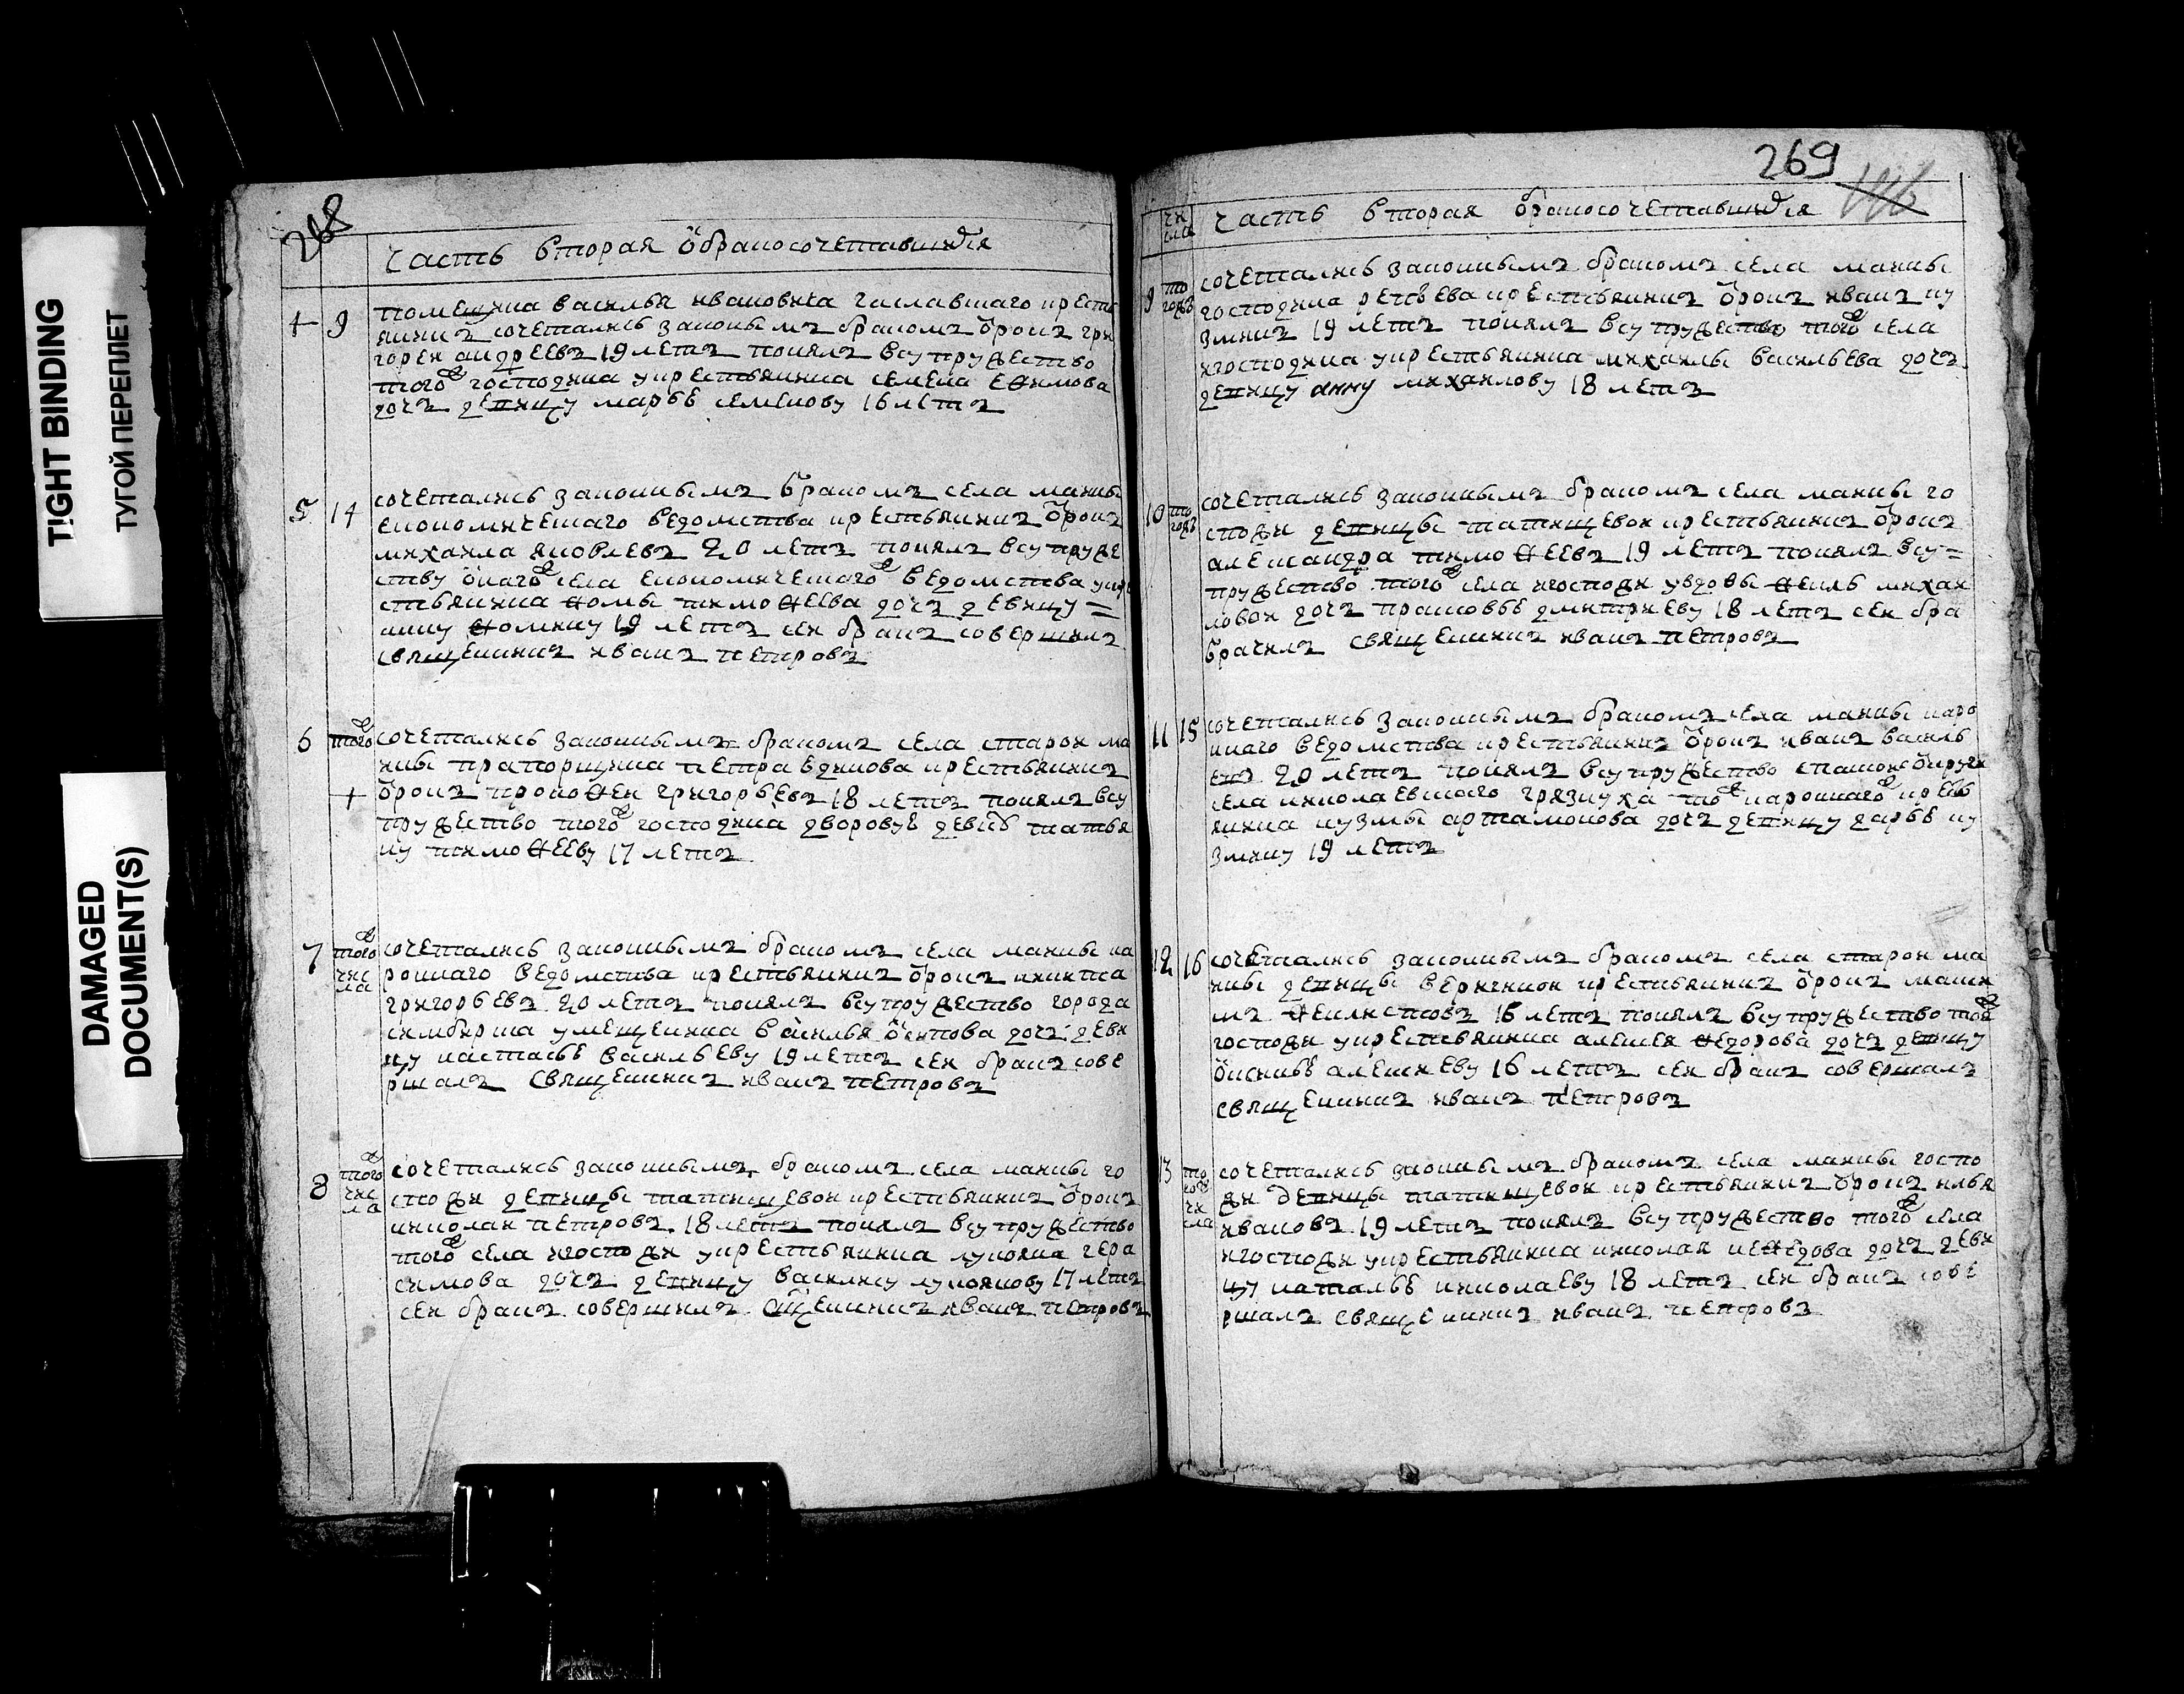 TIGHT BINDING
ТУГОЙ ПЕРЕПЛЕТ
DAMAGED
DOCUMENT(S)
268
часть вторая обракосочетавшихся
4 9
помещика василья ивановича крестья
янинъ сочетались законнымъ бракомъ отрокъ гри
гореи андреевъ 19 летъ понялъ всупружество
тогож господина укрестьянина семена ефимова
дочъ девицу марью семенову 16 летъ
5 14
сочетались законнымъ бракомъ села маины
економическаго ведомства крестьянинъ отрокъ
михаила яковлевъ 20 летъ понялъ всупруже
ству онагож села економическагож ведомства укре
стьянина фомы тимофеева дочъ девицу
анну фомину 19 летъ сеи бракъ совершилъ
священникъ иванъ петровъ
6 тогож
сочетались законнымъ бракомъ села старои ма
ины прапорщика петра крестьянинъ
отрокъ прокофеи григорьевъ 18 летъ понялъ всу
пружество тогож господина дворовую девку татья
ну тимофееву 17 летъ
7 тогож
числа
сочетались законнымъ бракомъ села маины ка
роннаго ведомства крестьянинъ отрокъ никита
григорьевъ 20 летъ понялъ всупружество города
симбирска умещенина василья осипова дочъ деви
цу настасью васильеву 19 летъ сеи бракъ сове
ршалъ священникъ иванъ петровъ
8 тогож
числа
сочетались законнымъ бракомъ села маины го
спожи девицы татищевои крестьянинъ отрокъ
николаи петровъ 18 летъ понялъ всупружество
тогож села игоспожи укрестьянина лукояна гера
симова дочъ девицу василису лукоянову 17 летъ
сеи бракъ совершилъ сщенникъ иванъ петровъ
269
числа
часть вторая обракосочетавшихся
9 тогож
сочетались законнымъ бракомъ села маины
господина крестьянинъ отрокъ иванъ ку
зминъ 19 летъ понялъ всупружество тогож села
игосподина укрестьянина михаилы васильева дочъ
девицу анну михаилову 18 летъ
10 тогож
сочетались законнымъ бракомъ села маины го
спожи девицы татищевои крестьянинъ отрокъ
александра тимофеевъ 19 летъ понялъ всу=
пружество тогож села игоспожи увдовы михаи
ловои дочъ прасковью дмитриеву 18 летъ сеи бра
брачилъ священникъ иванъ петровъ
11 15
сочетались законнымъ бракомъ села маины каро
ннаго ведомства крестьянинъ отрокъ иванъ василь
евъ 20 летъ понялъ всупружество спаскои округи
села николаевскаго грязнуха тож кароннагож кресть
янина кузмы артамонова дочъ девицу дарью ку
змину 19 летъ
12 16
сочетались законнымъ бракомъ села старои ма
ины девицы крестьянинъ отрокъ макси
мъ феклистовъ 16 летъ понялъ всупружество тоиж
госпожи укрестьянина алексея федорова дочъ девицу
алексееву 16 летъ сеи бракъ совершалъ
священникъ иванъ петровъ
13 тогож
числа
сочетались законнымъ бракомъ села маины госпо
жи девицы татищевои крестьянинъ отрокъ илья
ивановъ 19 летъ понялъ всупружество тогож села
игоспожи укрестьянина николая нефедова дочъ деви
цу наталью николаеву 18 летъ сеи бракъ сове
ршалъ священникъ иванъ петровъ